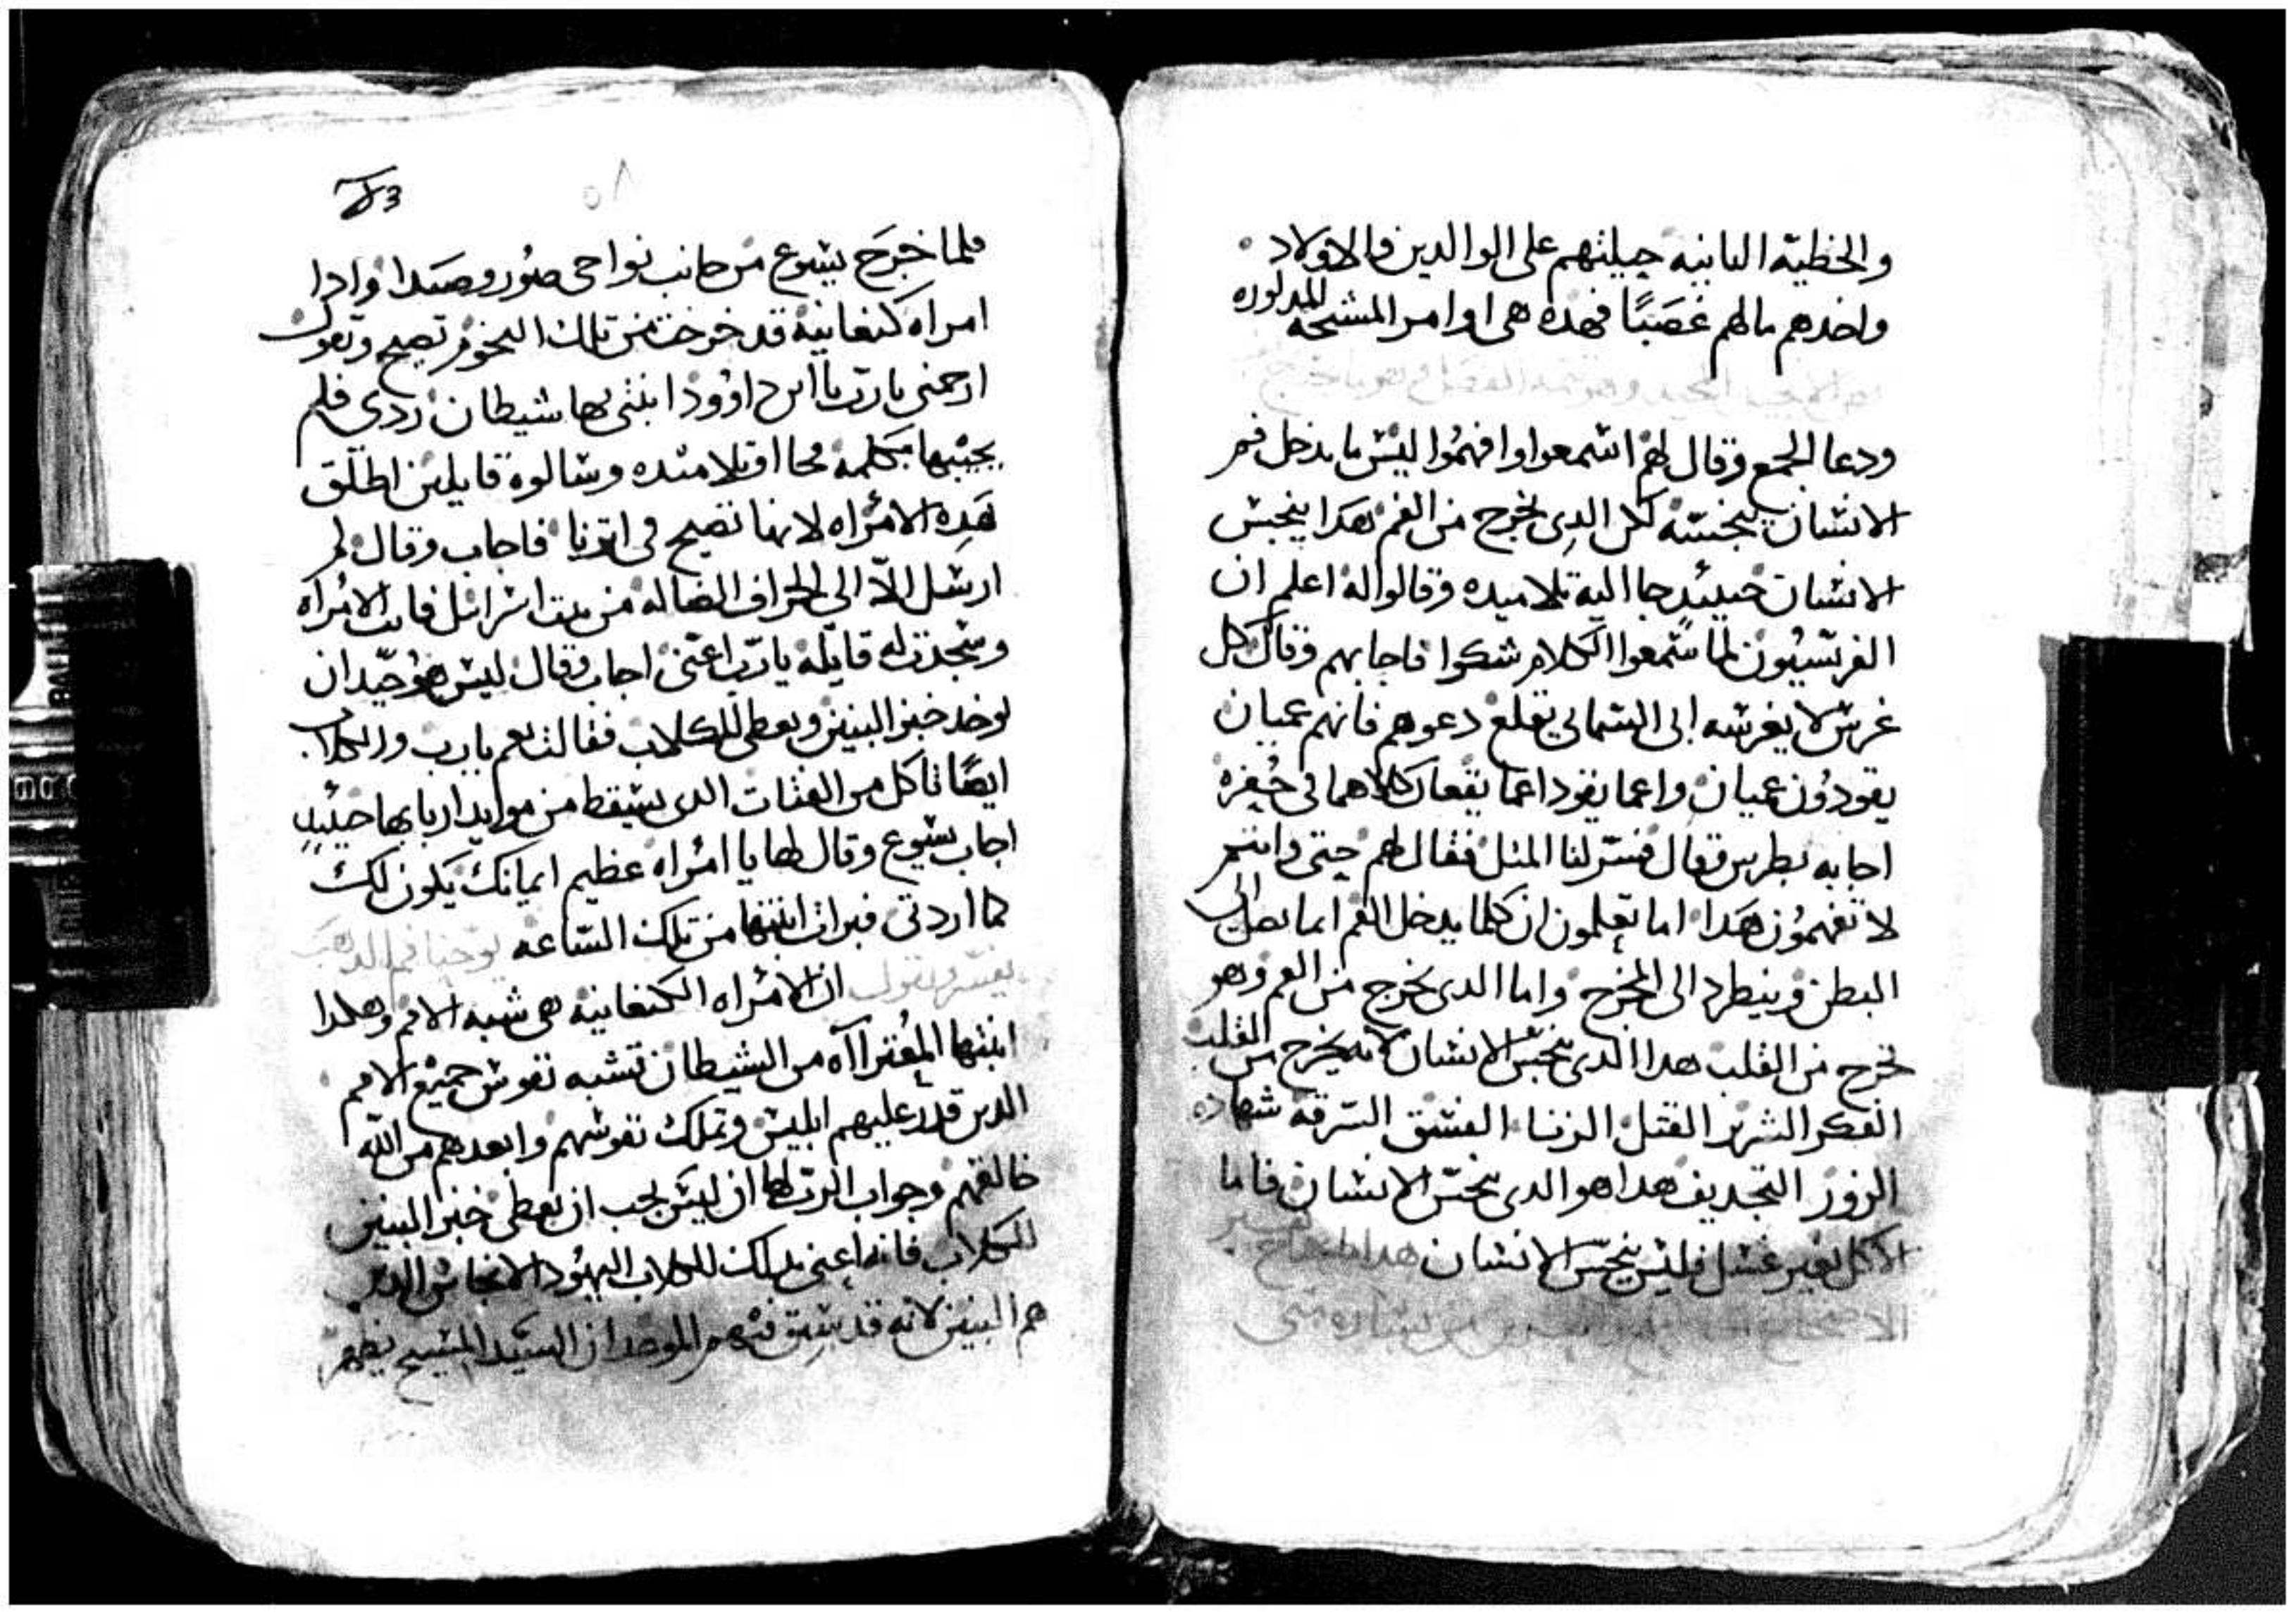 والخطية التانيه حيلتهم على الوالدين والاولاد
واخدهم مالهم غصبًا فهده هى اوامر المشيخه المدكوره
ودعا الجمع وقال لهم اسمعوا وافهموا ليس ما يدخل فم
الانسان ينجسه لكن الدى يخرج من الفم هدا ينجس
الانسان حينيد جا اليه تلاميده وقالوا له اعلم ان
الفريسيون لما سمعوا الكلام شكوا فاجابهم وقال كل
غرس لا يغرسه ابى السماىى يقلع دعوهم فانهم عميان
يقودون عميان واعما يقود اعما يقعان كلاهما فى حفره
اجابه بطرس وقال فسر لنا المتل فقال لهم حتى وانتم
لا تفهمون هدا اما تعلمون ان كلما يدخل الفم انما يصل الى
البطن وينطرد الى المخرج واما الدى يخرج من الفم وهو
يخرج من القلب هدا الدى ينجس الانسان لانه يخرج من القلب
الفكر الشرير القتل الزنا الفسق السرقه شهاده
الزور التجديف هدا هو الدى ينجس الانسان فاما
الاكل بغير غسل فليس ينجس الانسان
٥٨
فلما خرج يسوع من هناك جا نواحى صور وصيدا وادا
امراه كنعانيه قد خرجت من تلك التخوم تصيح وتقول
ارحمنى يا رب يا ابن داوود ابنتى بها شيطان ردى فلم
يجيبها بكلمه فجااو تلاميده وسالوه قايلين اطلق
هده الامراه لانها تصيح فى اترنا فاجاب وقال لم
ارسل الّا الى الخراف الضاله من بيت اسرائل فاتت الامراه
وسجدت له قايله يا رب اعنى اجاب وقال ليس هو جيد ان
يوخد خبز البنين ويعطى للكلاب فقالت نعم يا رب والكلاب
ايضًا تاكل من الفتات الدى يسقط من موايد اربابها حينيد
اجاب يسوع وقال لها يا امراه عظيم ايمانك يكون لك
كما اردتى فبرات ابنتها من تلك الساعه يوحنا فم الدهب
يفسر ويقول ان الامراه الكنعانيه هى شبه الامم وهكدا
ابنتها المعتراآه من الشيطان تشبه نفوس جميع الامم
الدين قدر عليهم ابليس وتملك نفوسهم وابعدهم من الله
خالقهم وجواب الرب لها ان ليس يجب ان يعطى خبز البنين
للكلاب فانه اعنى بدلك للكلاب اليهود الانجاس الدين
هم البنين لانه قد سبق فيهم الموعد ان السيد المسيح يظهر